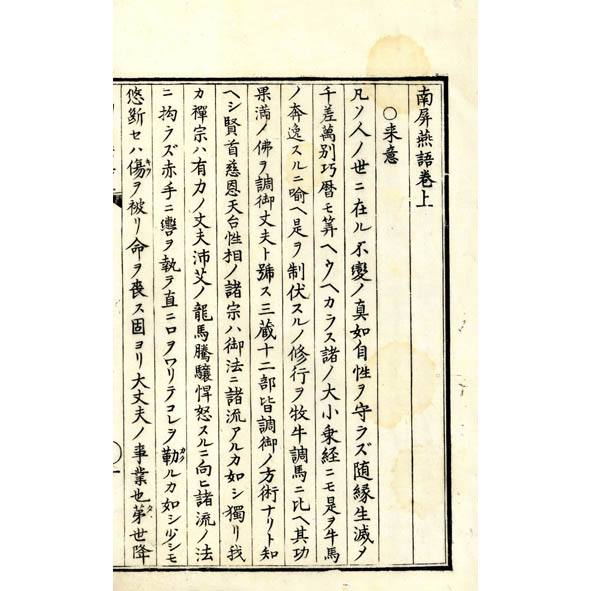 南屏燕語卷上
○来意
凡ソ人ノ世ニ在ル不變ノ真如自性ヲ守ラズ随縁生滅〆
千差萬別巧暦モ筭ヘウヘカラス諸ノ大小乗経ニモ是ヲ牛馬
ノ奔逸スルニ喻ヘ是ヲ制伏スルノ修行ヲ牧牛調馬ニ比ヘ其功
果満ノ佛ヲ調御丈夫ト號ス三蔵十二部皆調御ノ方術ナリト知
ヘシ賢首慈恩天台性相ノ諸宗ハ御法ニ諸流アルカ如シ獨リ我
カ禪宗ハ有力ノ丈夫沛艾ノ龍馬騰驤悍怒スルニ向ヒ諸流ノ法
ニ拘ラズ赤手ニ轡ヲ執テ直ニ口ヲワリテコレヲ勒ルカ如シ少シモ
悠斷セハ傷ヲ被リ命ヲ喪ス固ヨリ大丈夫ノ事業也第世降